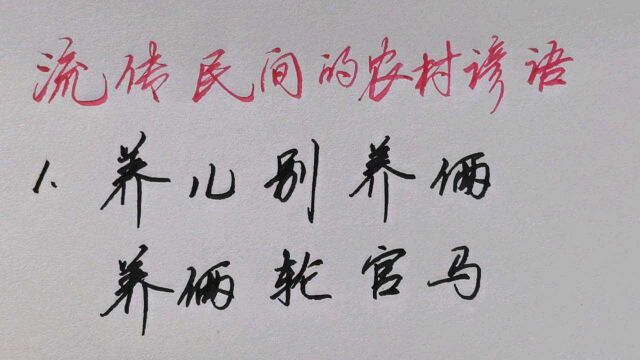 流传民间的农村谚语
1. 养儿别养俩
养俩轮官马